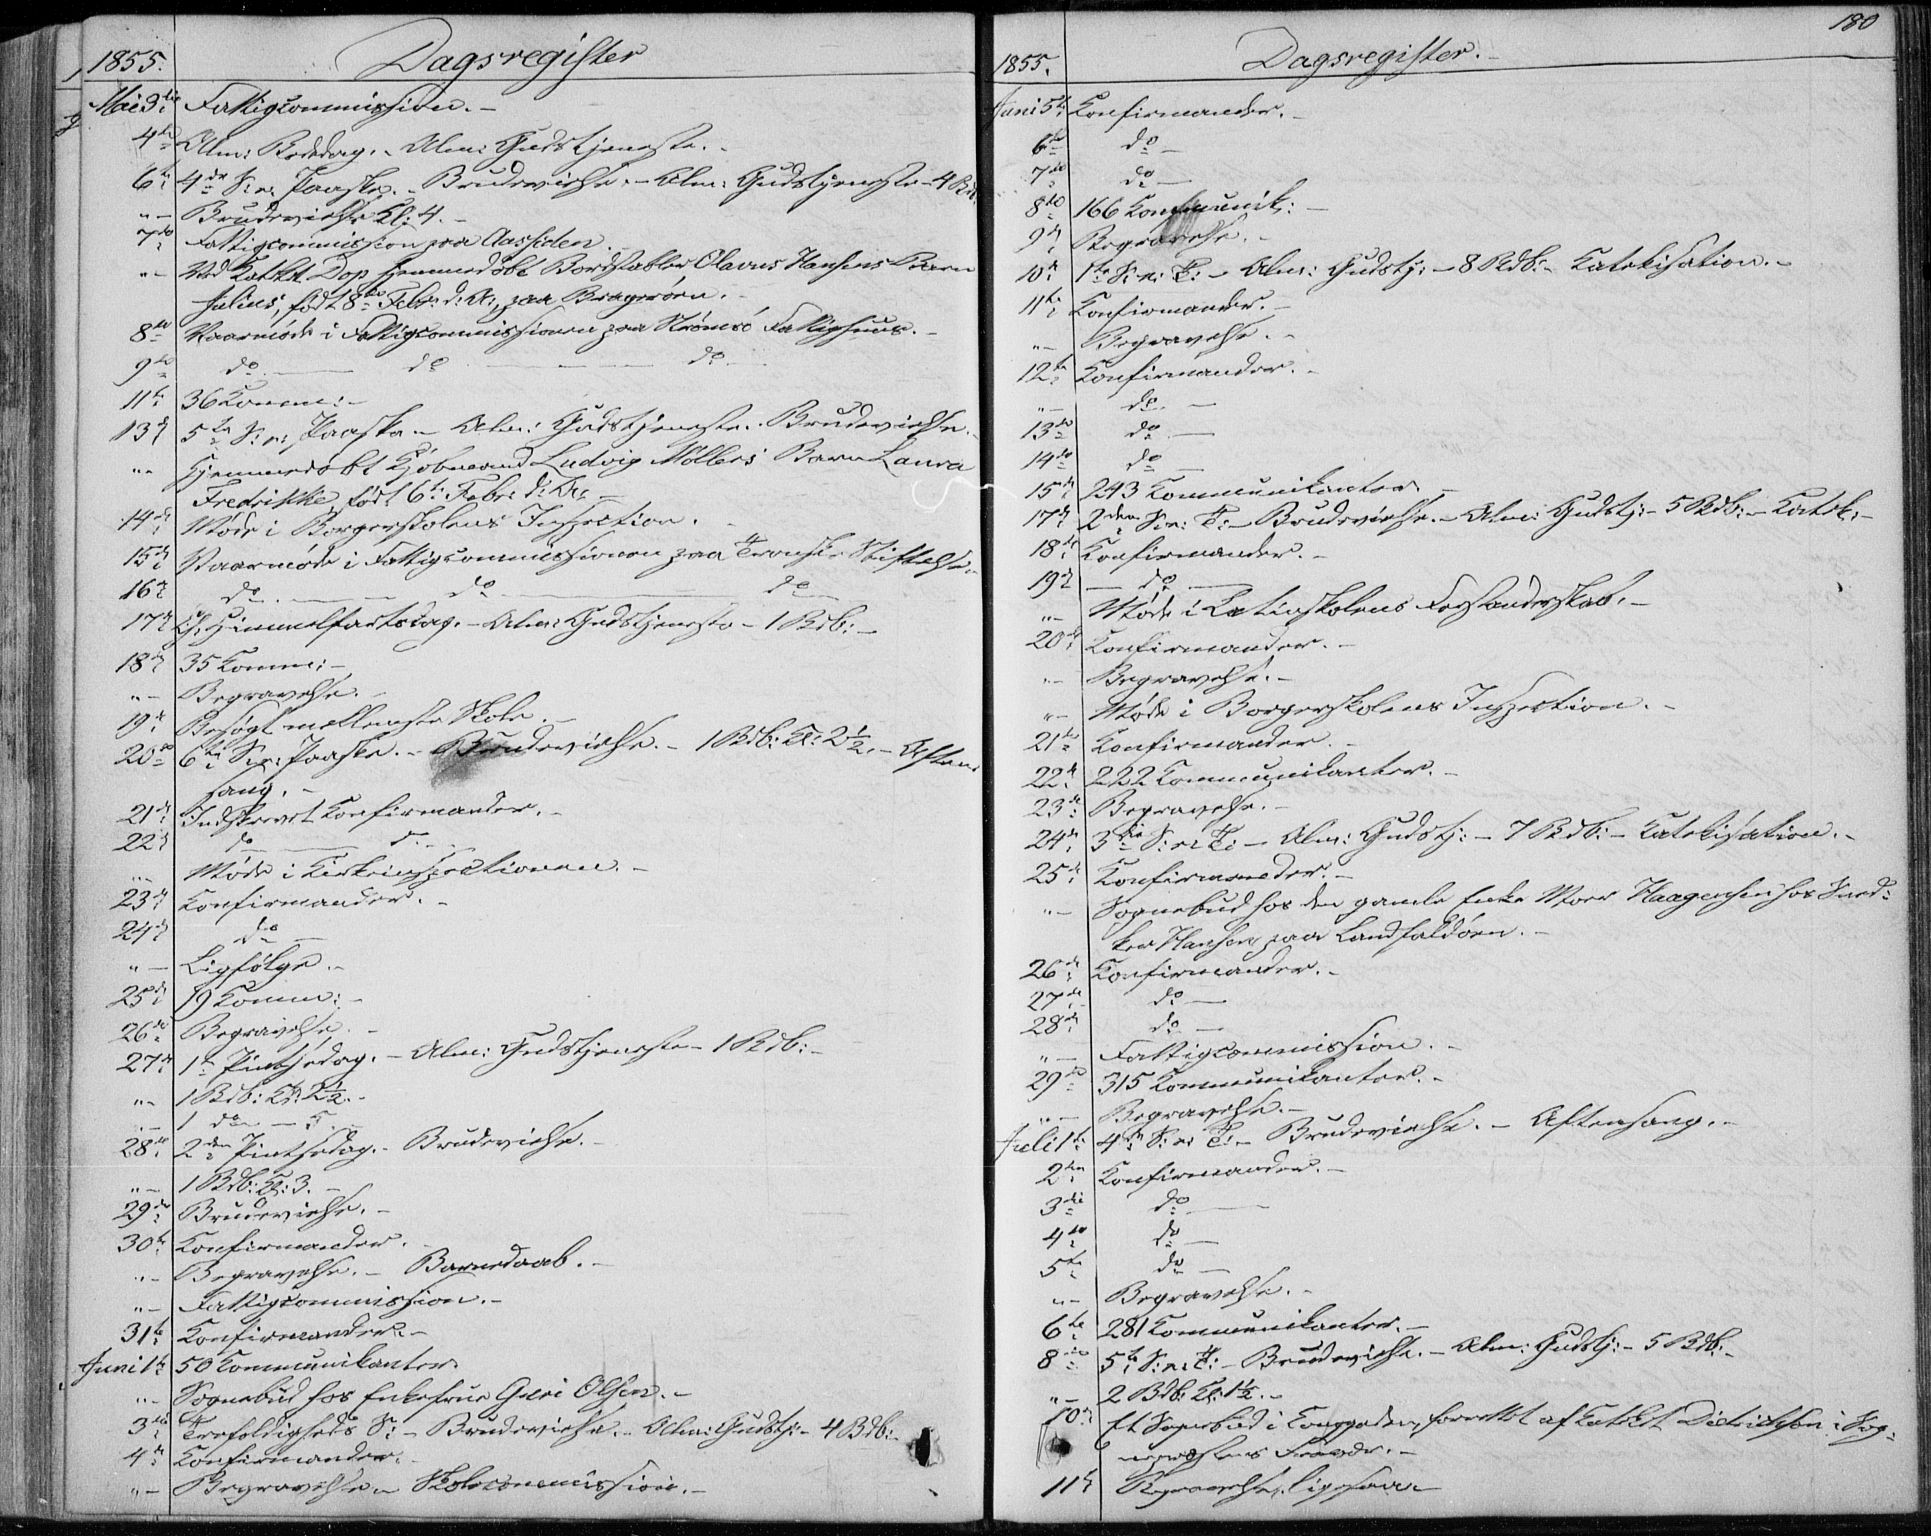 1855. Dagsregister
Mai 3die Fattigcommission. -
4de Alm: Bededag. - Alm: Gudstjeneste. -
6te 4de S: e: Paaske. - Brudevielse. - Alm: Gudstjeneste - 4 Bdb:
" - Brudevielse Kl: 4. -
7de Fattigcommission paa Aassiden.
" - Ved Katkt Dop hjemmedøbt Bordstabler Olavus Hansens Barn
Julius, født 8de Febr: d: A: paa Bragerøen. -
8de Vaarmøde i Fattigcommissionen paa Strømsø Fattighuus. -
9de do - do - do -
11te 36 Komm: -
13de 5te S: e: Paaske. - Alm: Gudstjeneste. Brudevielse. -
" - Hjemmedøbt Kjøbmand Ludvig Møllers Barn Laura
Fredrikke, født 6te Febr: d: A: -
14de Møde i Borgerskolens Inspection. -
15de Vaarmøde i Fattigcommissionen paa Tronske Stiftelse. -
16de do - do - do
17de Ch: Himmelfartsdag. - Alm: Gudstjeneste - 1 Bdb: -
18de 35 Komm: -
" - Begravelse. -
19de Besøgt mellemste Skole. -
20de 6te S: e: Paaske. - Brudevielse. - 1 Bdb: Kl: 2½. - Aften
sang. -
21de Indskrevet Konfirmander. -
22de do
" - Møde i Kirkeinspectionen. -
23de Konfirmander. -
24de do -
" - Ligfølge. -
25de 19 Komm: -
26de Begravelse. -
27de 1te Pintsedag. - Alm: Gudstjeneste - 1 Bdb: -
" - 1 Bdb: Kl: 2½. -
" - 1 do - 5. -
28de 2den Pintsedag. - Brudevielse. -
" - 1 Bdb: Kl: 3. -
29de Brudevielse. -
30te Konfirmander. -
" - Begravelse. - Barnedaab. -
" - Fattigcommission. -
31te Konfirmander. -
Juni 1te 50 Kommunikanter.
" - Sognebud hos Enkefrue Guri Olsen. -
3die Trefoldigheds S: - Brudevielse. - Alm: Gudstj: - 4 Bdb: -
4de Konfirmander.
" - Begravelse. - Skolecommission. -
180
1855. Dagsregister. -
Juni 5te Konfirmander. -
6te do -
7de do -
8de 166 Kommunik: -
9de Begravelse. -
10de 1te S: e: T: - Alm: Gudstj: - 8 Bdb: - Katekisation. -
11te Konfirmander. -
" - Begravelse. -
12te Konfirmander. -
" - do. -
13de do -
14de do -
15de 243 Kommunikanter. -
17de 2den S: e: T: - Brudevielse. - Alm: Gudstj: - 5 Bdb: - Katek: -
18de Konfirmander. -
19de - do -
" - Møde i Latinskolens Forstanderskab. -
20de Konfirmander. -
" - Begravelse. -
" - Møde i Borgerskolens Inspection. -
21de Konfirmander. -
22de 222 Kommunikanter. -
23de Begravelse. -
24de 3die S: e: T: - Alm: Gudstj: - 7 Bdb: - Katekisation. -
25de Konfirmander. -
" - Sognebud hos den gamle Enke Moer Haagensen hos Sned-
ker Hansen paa Landfaldøen. -
26de Konfirmander. -
27de do -
28de do -
" - Fattigcommission. -
29de 315 Kommunikanter. -
" - Begravelse. -
Juli 1te 4de S: e: T: - Brudevielse. - Aftensang. -
2den Konfirmander. -
3die do -
4de do -
5te do -
" - Begravelse. -
6te 281 Kommunikanter. -
8de 5te S: e: T: - Brudevielse. - Alm: Gudstj: - 5 Bdb: -
" - 2 Bdb: Kl: 1½. -
10de Et Sognebud i Konggaden, forrettet af Katekt Dietrichson i Sog-
nepræstens Fravær. -
11te Begravelse, ligesaa. -